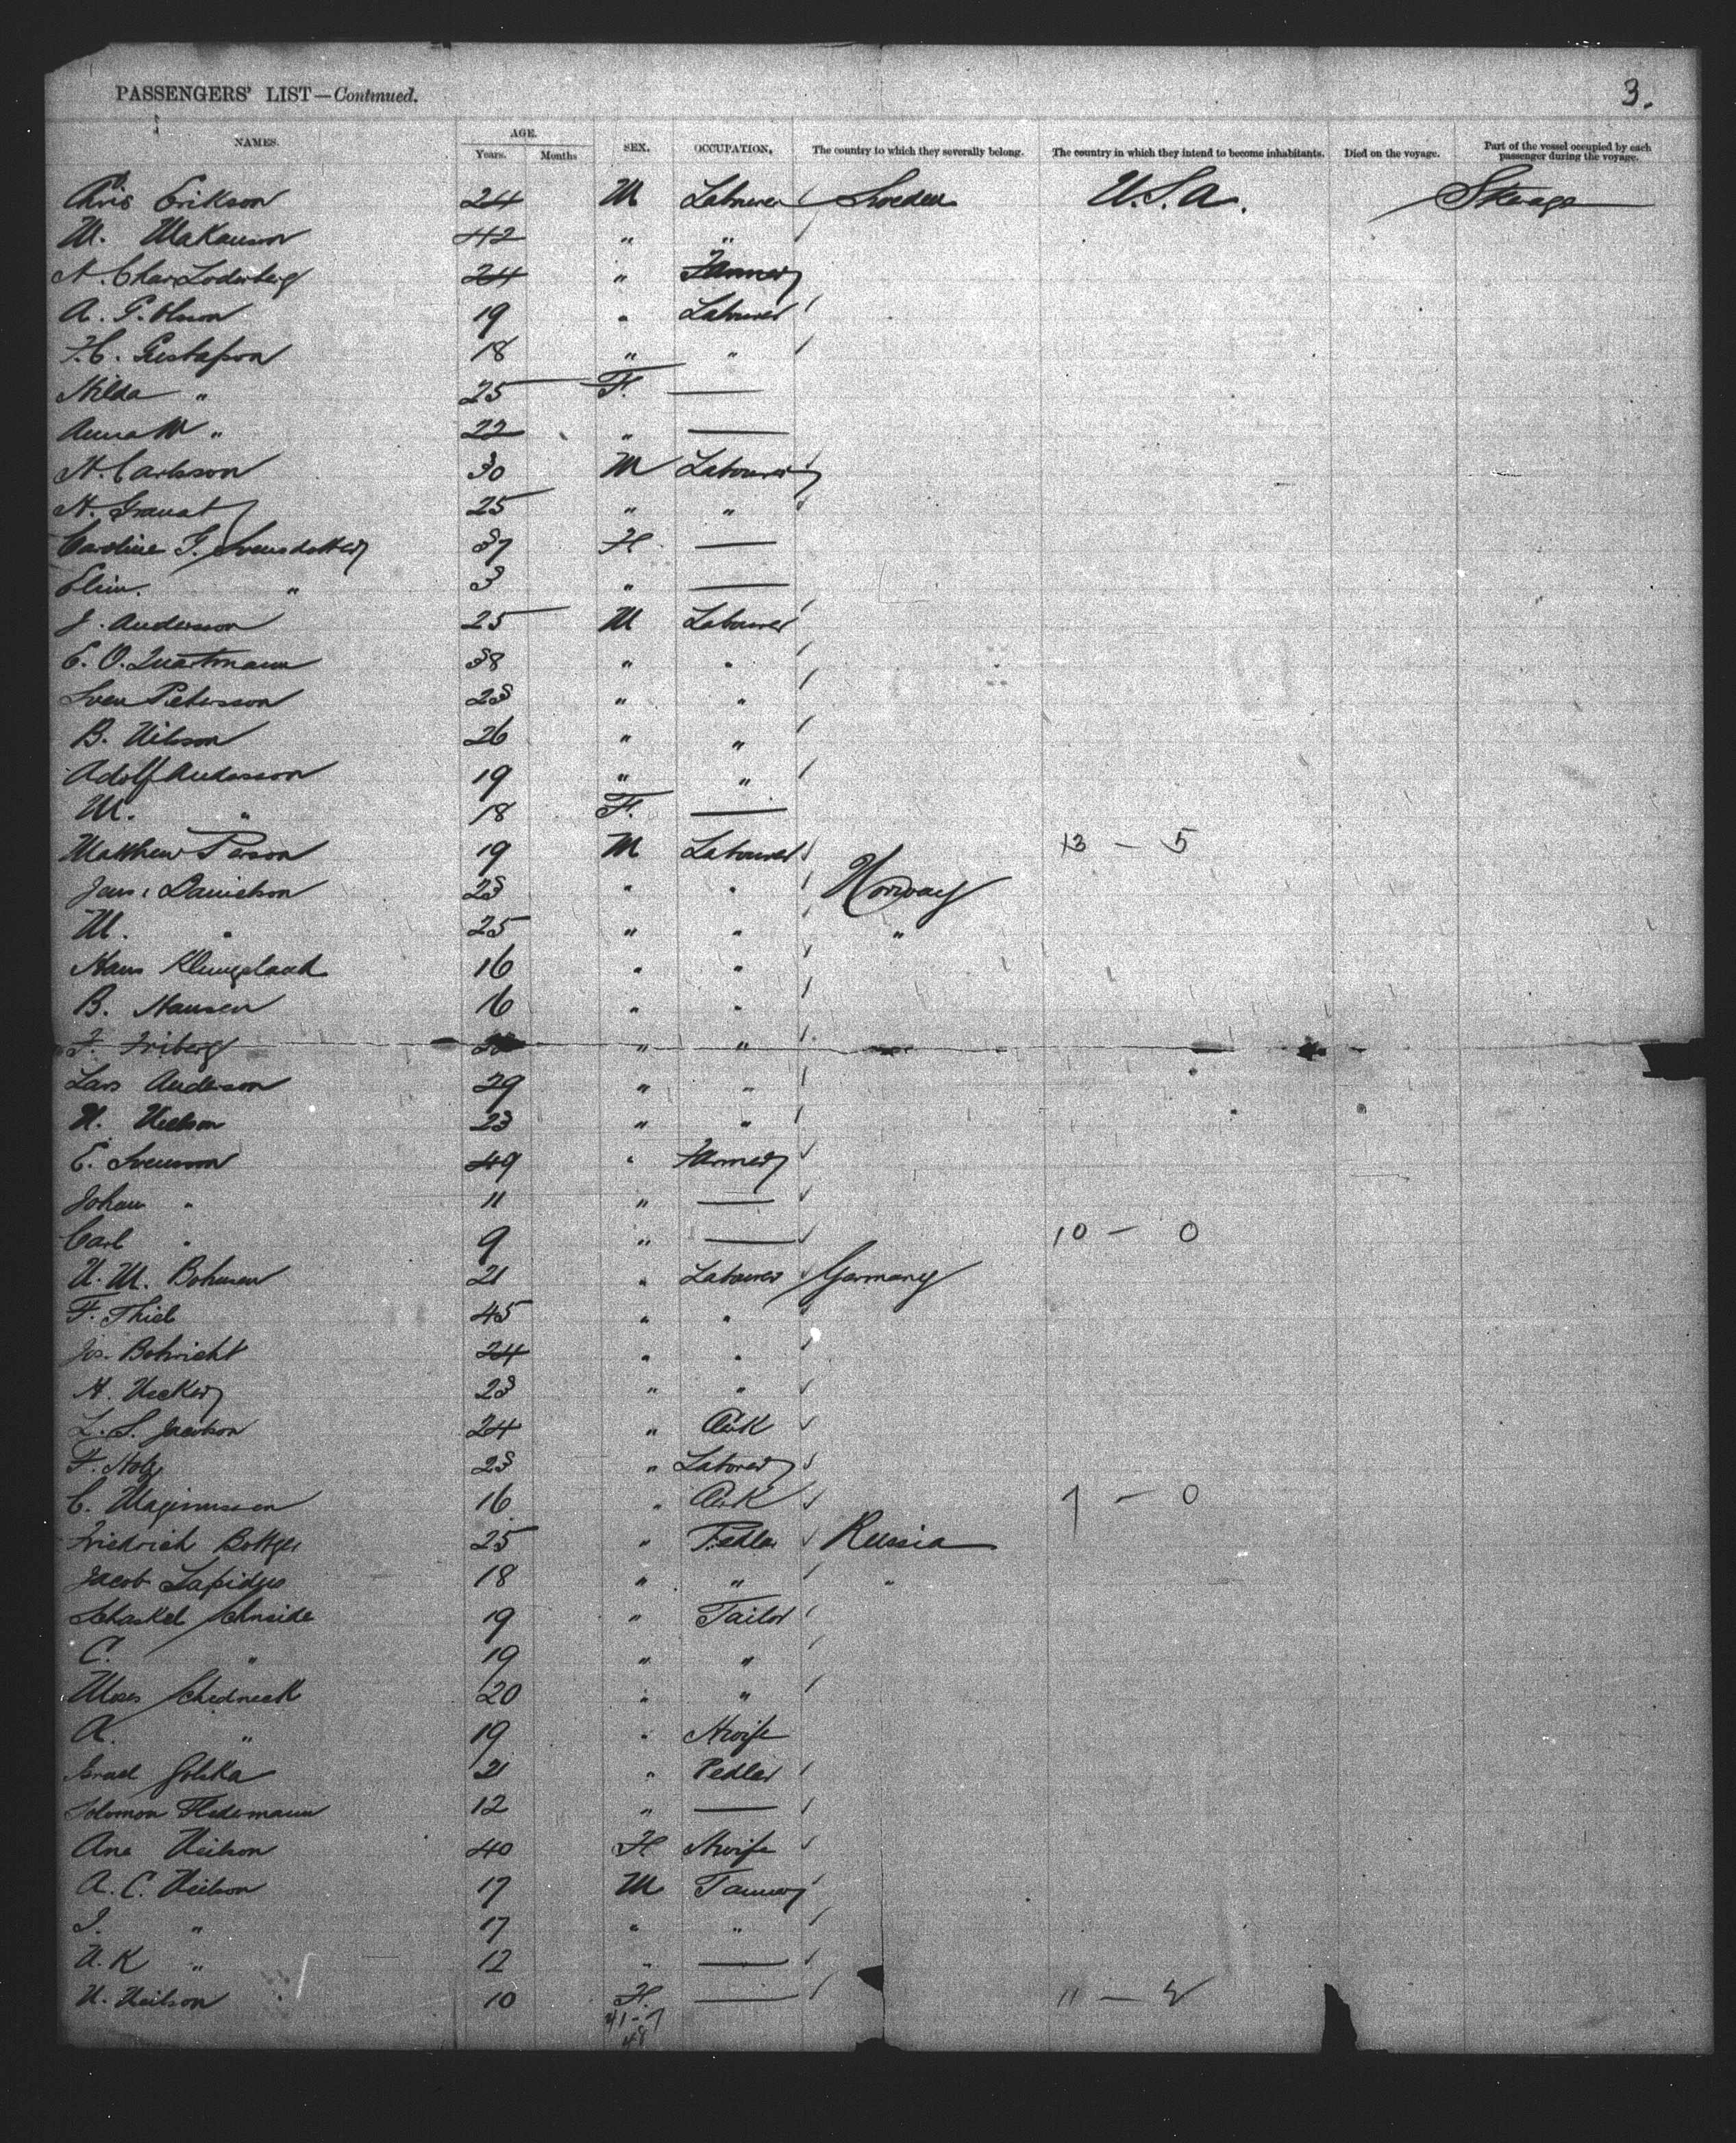 PASSENGERS' LIST—Continued. 3.
NAMES. AGE. Years. Months SEX. OCCUPATION. The country to which they severally belong. The country in which they intend to become inhabitants. Died on the voyage. Part of the vessel occupied by each passenger during the voyage.
Chris Erikson 24 M Labourer Sweden U.S.A. Steerage
M. 42 " "
24 " Farmer
A. G. Olsson 19 " Labourer
F.C. Gustafson 18 " "
Hilda " 25 F. —
Anna M " 22 " —
H. Carlsson 30 M Labourer
H. Granat 25 " "
Caroline G. Svensdotter 37 F —
Elin. " 3 " —
J. Andersson 25 M Labourer
E. O. Quartmann 38 " "
Sven Petersson 23 " "
B. Nilsson 26 " "
Adolf Andersson 19 " "
M. " 18 F. —
Matthew Person 19 M Labourer 13 — 5
Jens Danielson 23 " " Norway
M. " 25 " " "
Hans 16 " "
B. Hansen 16 " "
F. Friberg " "
Lars Anderson 29 " "
N. Nielson 23 " "
E. Svensson 49 " Farmer
Johan " 11 " —
Carl " 9 " — 10 — 0
N. M. Bohnsen 21 " Labourer Germany
F. Thiel 45 " "
Jos. Bohricht 24 " "
H. Necker 23 " "
L. S. Jacobson 24 " Clerk
F. Holz 23 " Laborer
C. Magnussen 16 " Clerk 7 — 0
Friedrich Bottger 25 " Pedlar Russia
Jacob Lapidus 18 " " "
Schaskel Schneide 19 " Tailor
C. " 19 " "
Moses Schedneck 20 " "
A. " 19 " Hwife
Israel Golka 21 " Pedlar
Solomon Fledemann 12 " —
Ane Neilson 40 F Hwife
A. C. Neilson 17 M Tanner
J. " 17 " "
N. K " 12 " —
N. Neilson 10 F. — 11 — 2
41-7
48